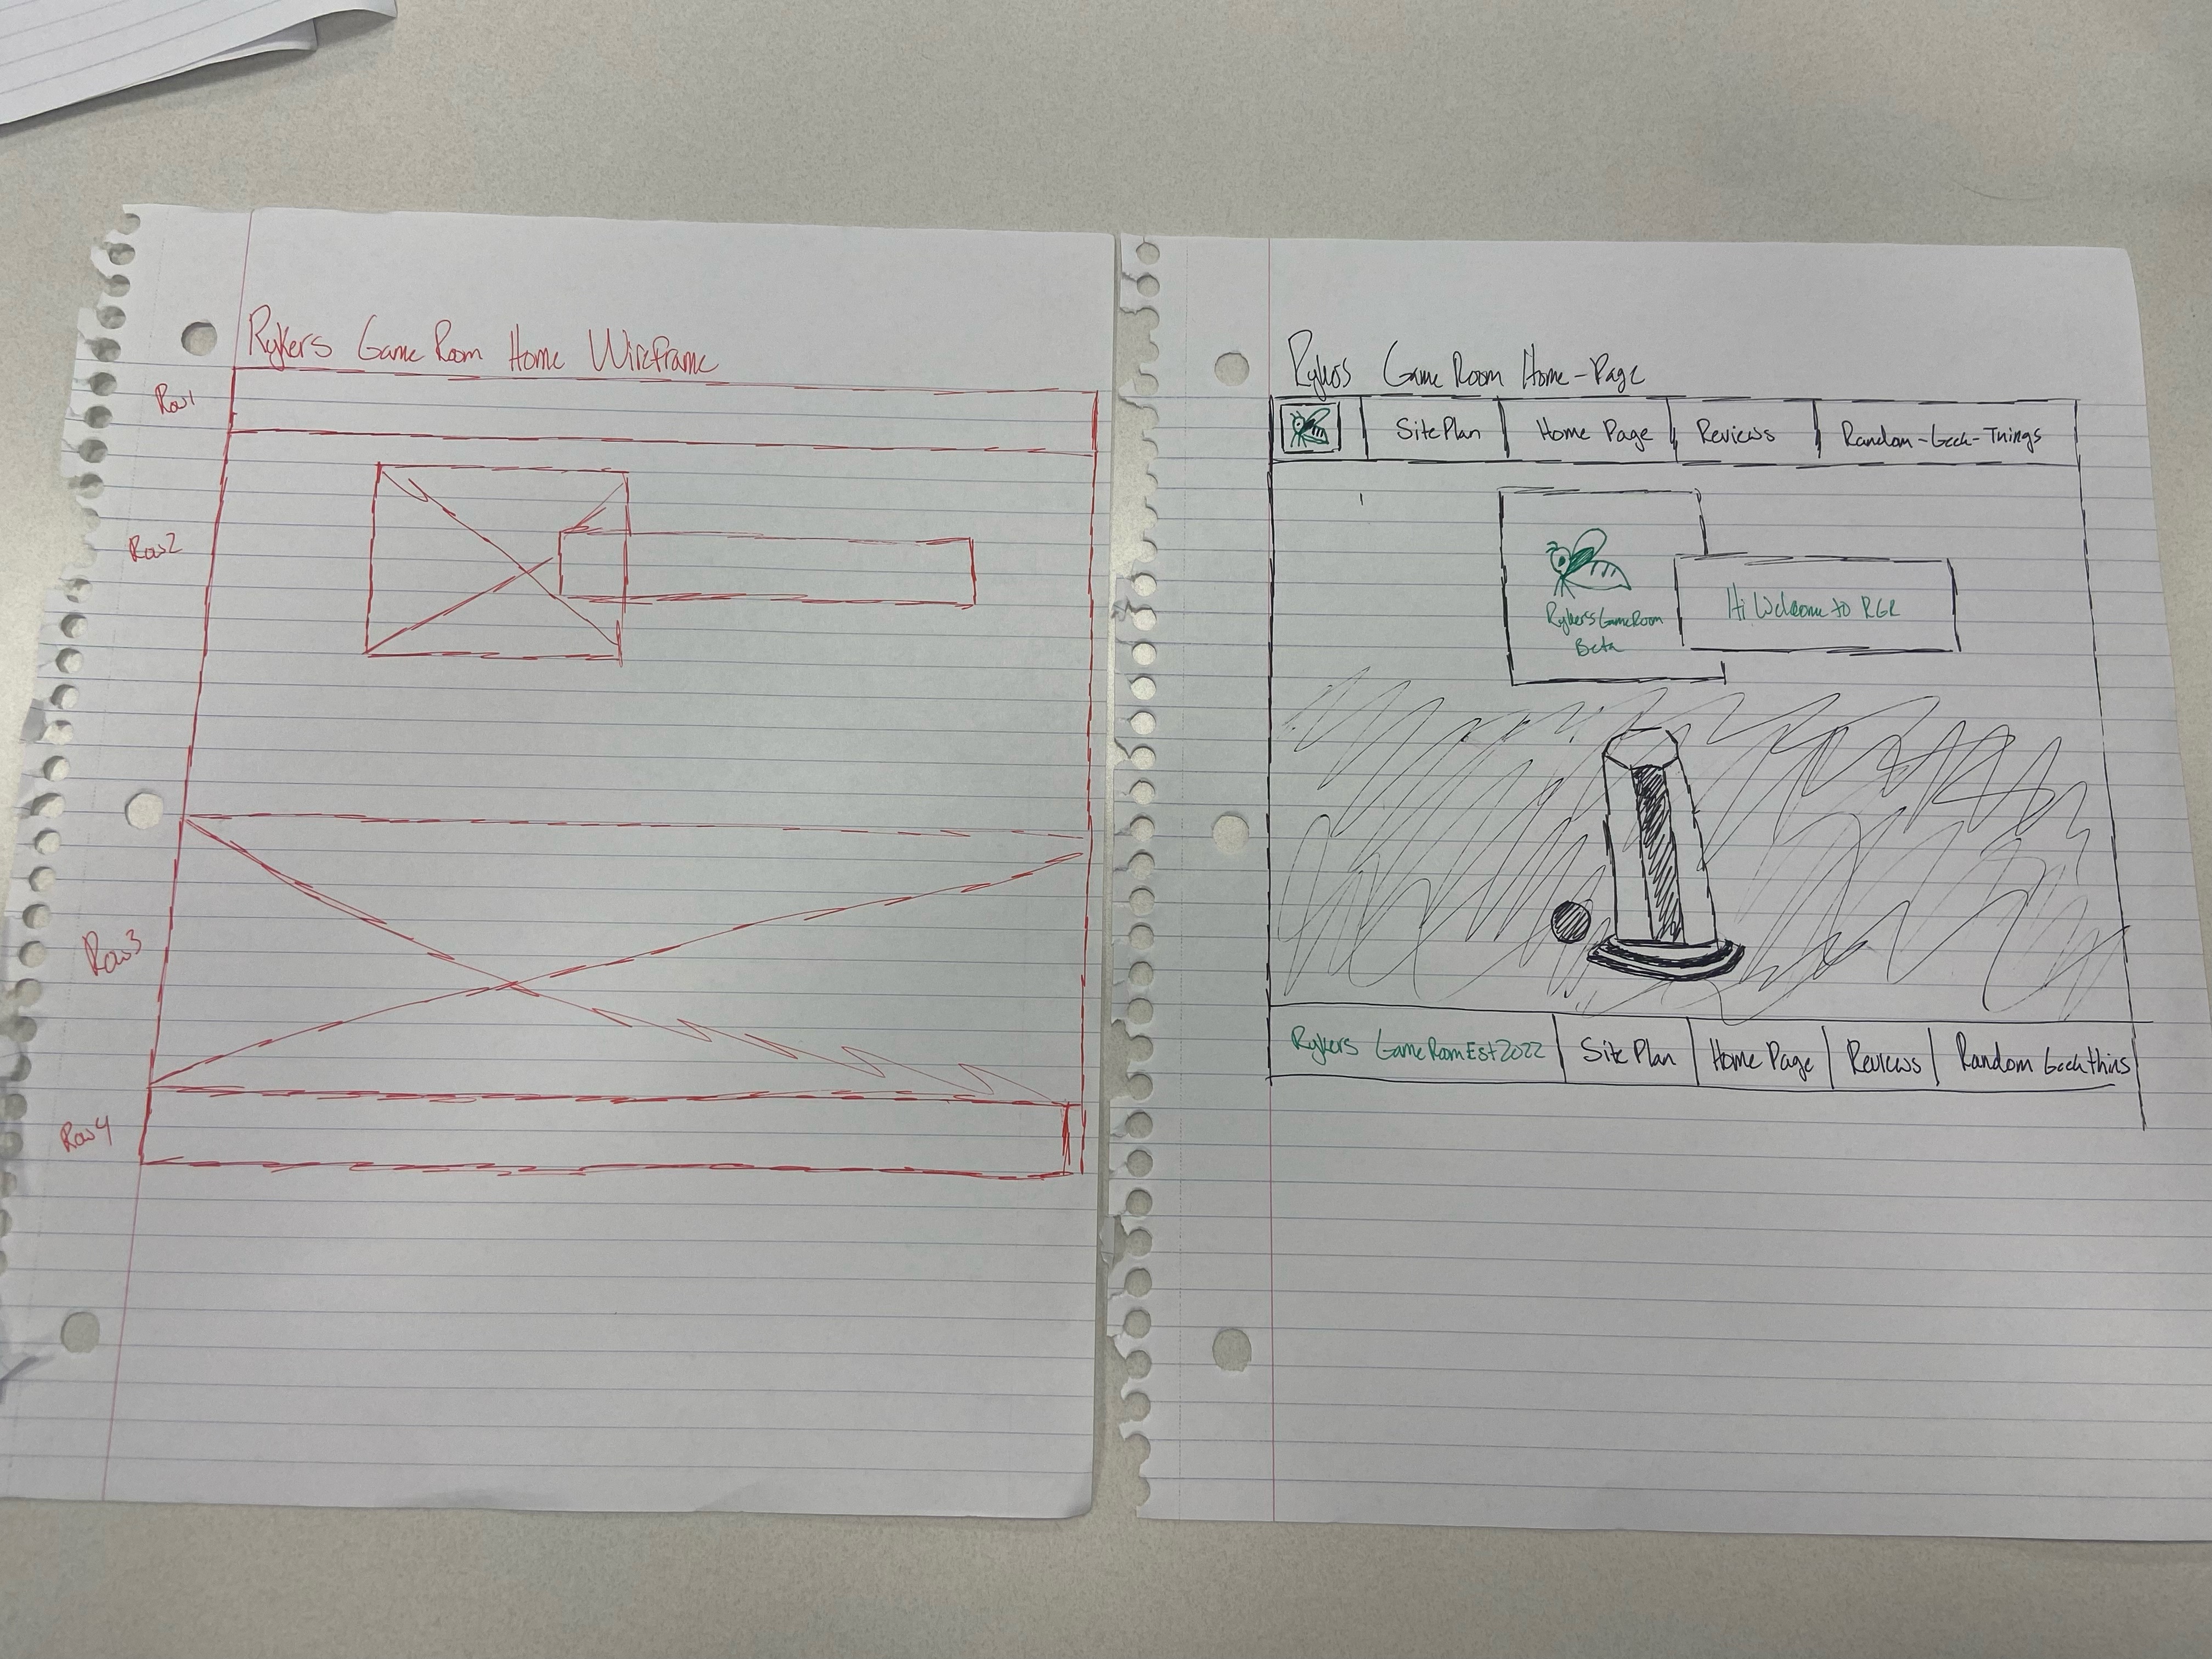 Rykers Game Room Home Wireframe
Row1
Row2
Row3
Row4
Rykers Game Room Home-Page
Site Plan
Home Page
Reviews
Random-Geek-Things
Rykers Game Room
Beta
Hi Welcome to RGR
Rykers Game Room Est 2022
Site Plan
Home Page
Reviews
Random Geek thins